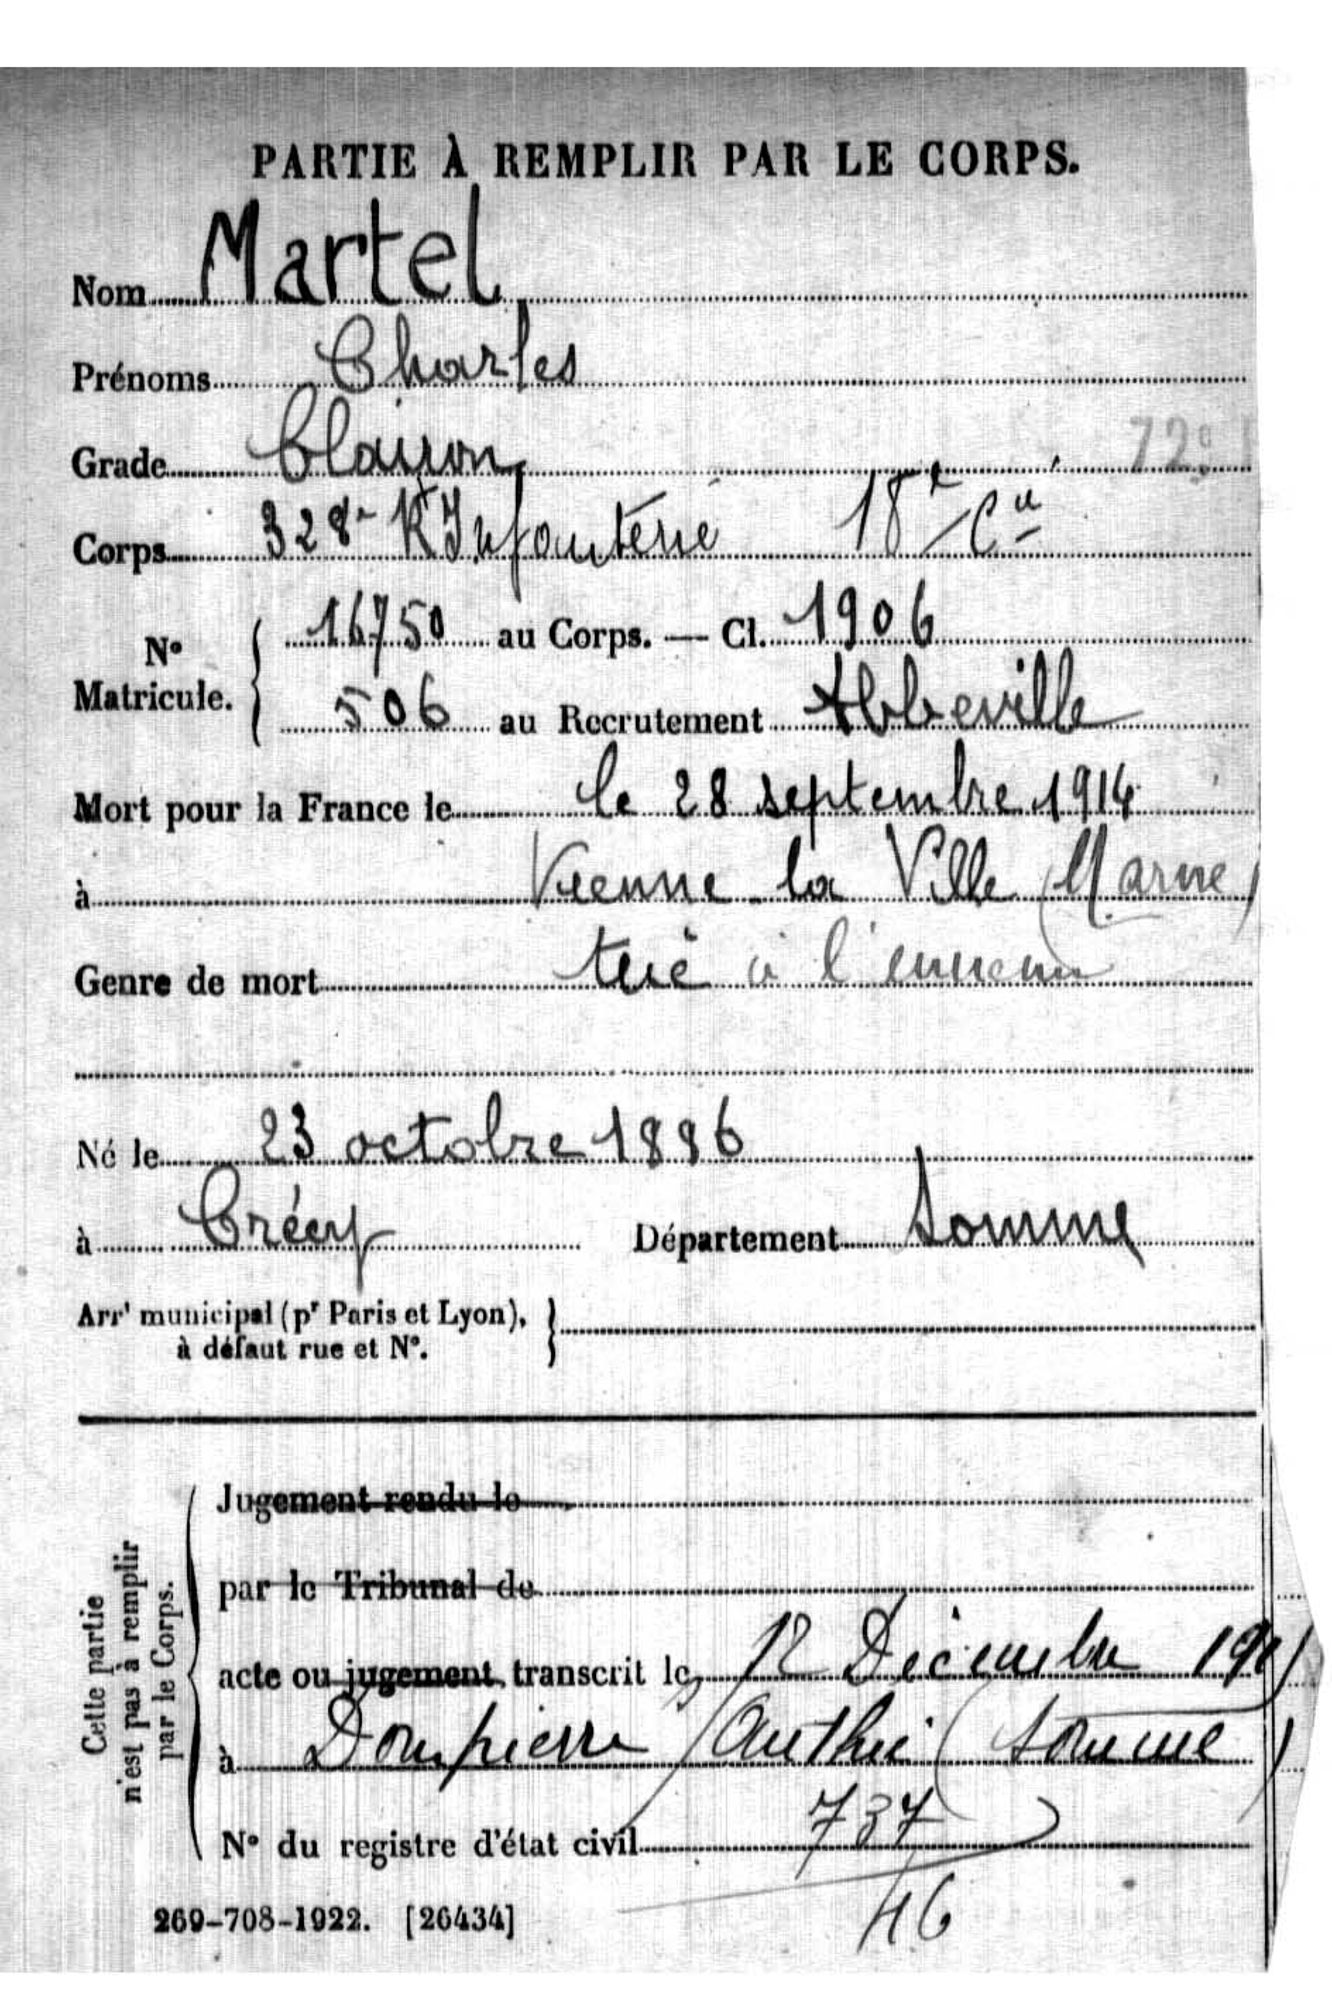 PARTIE À REMPLIR PAR LE CORPS.
Nom Martel
Prénoms Charles
Grade Clairon 72e
Corps 328e R Infanterie 18e Cie
N° Matricule. 16750 au Corps. — Cl. 1906
506 au Recrutement Abbeville
Mort pour la France le le 28 septembre 1914
à Vienne la Ville (Marne)
Genre de mort tué à l'ennemi
Né le 23 octobre 1886
à Crécy Département Somme
Arrt municipal (pr Paris et Lyon),
à défaut rue et N°.
Cette partie
n'est pas à remplir
par le Corps.
Jugement rendu le
par le Tribunal de
acte ou jugement transcrit le 12 Décembre
à Dompierre s/ Authie (Somme)
N° du registre d'état civil 737
46
269-708-1922. [26434]